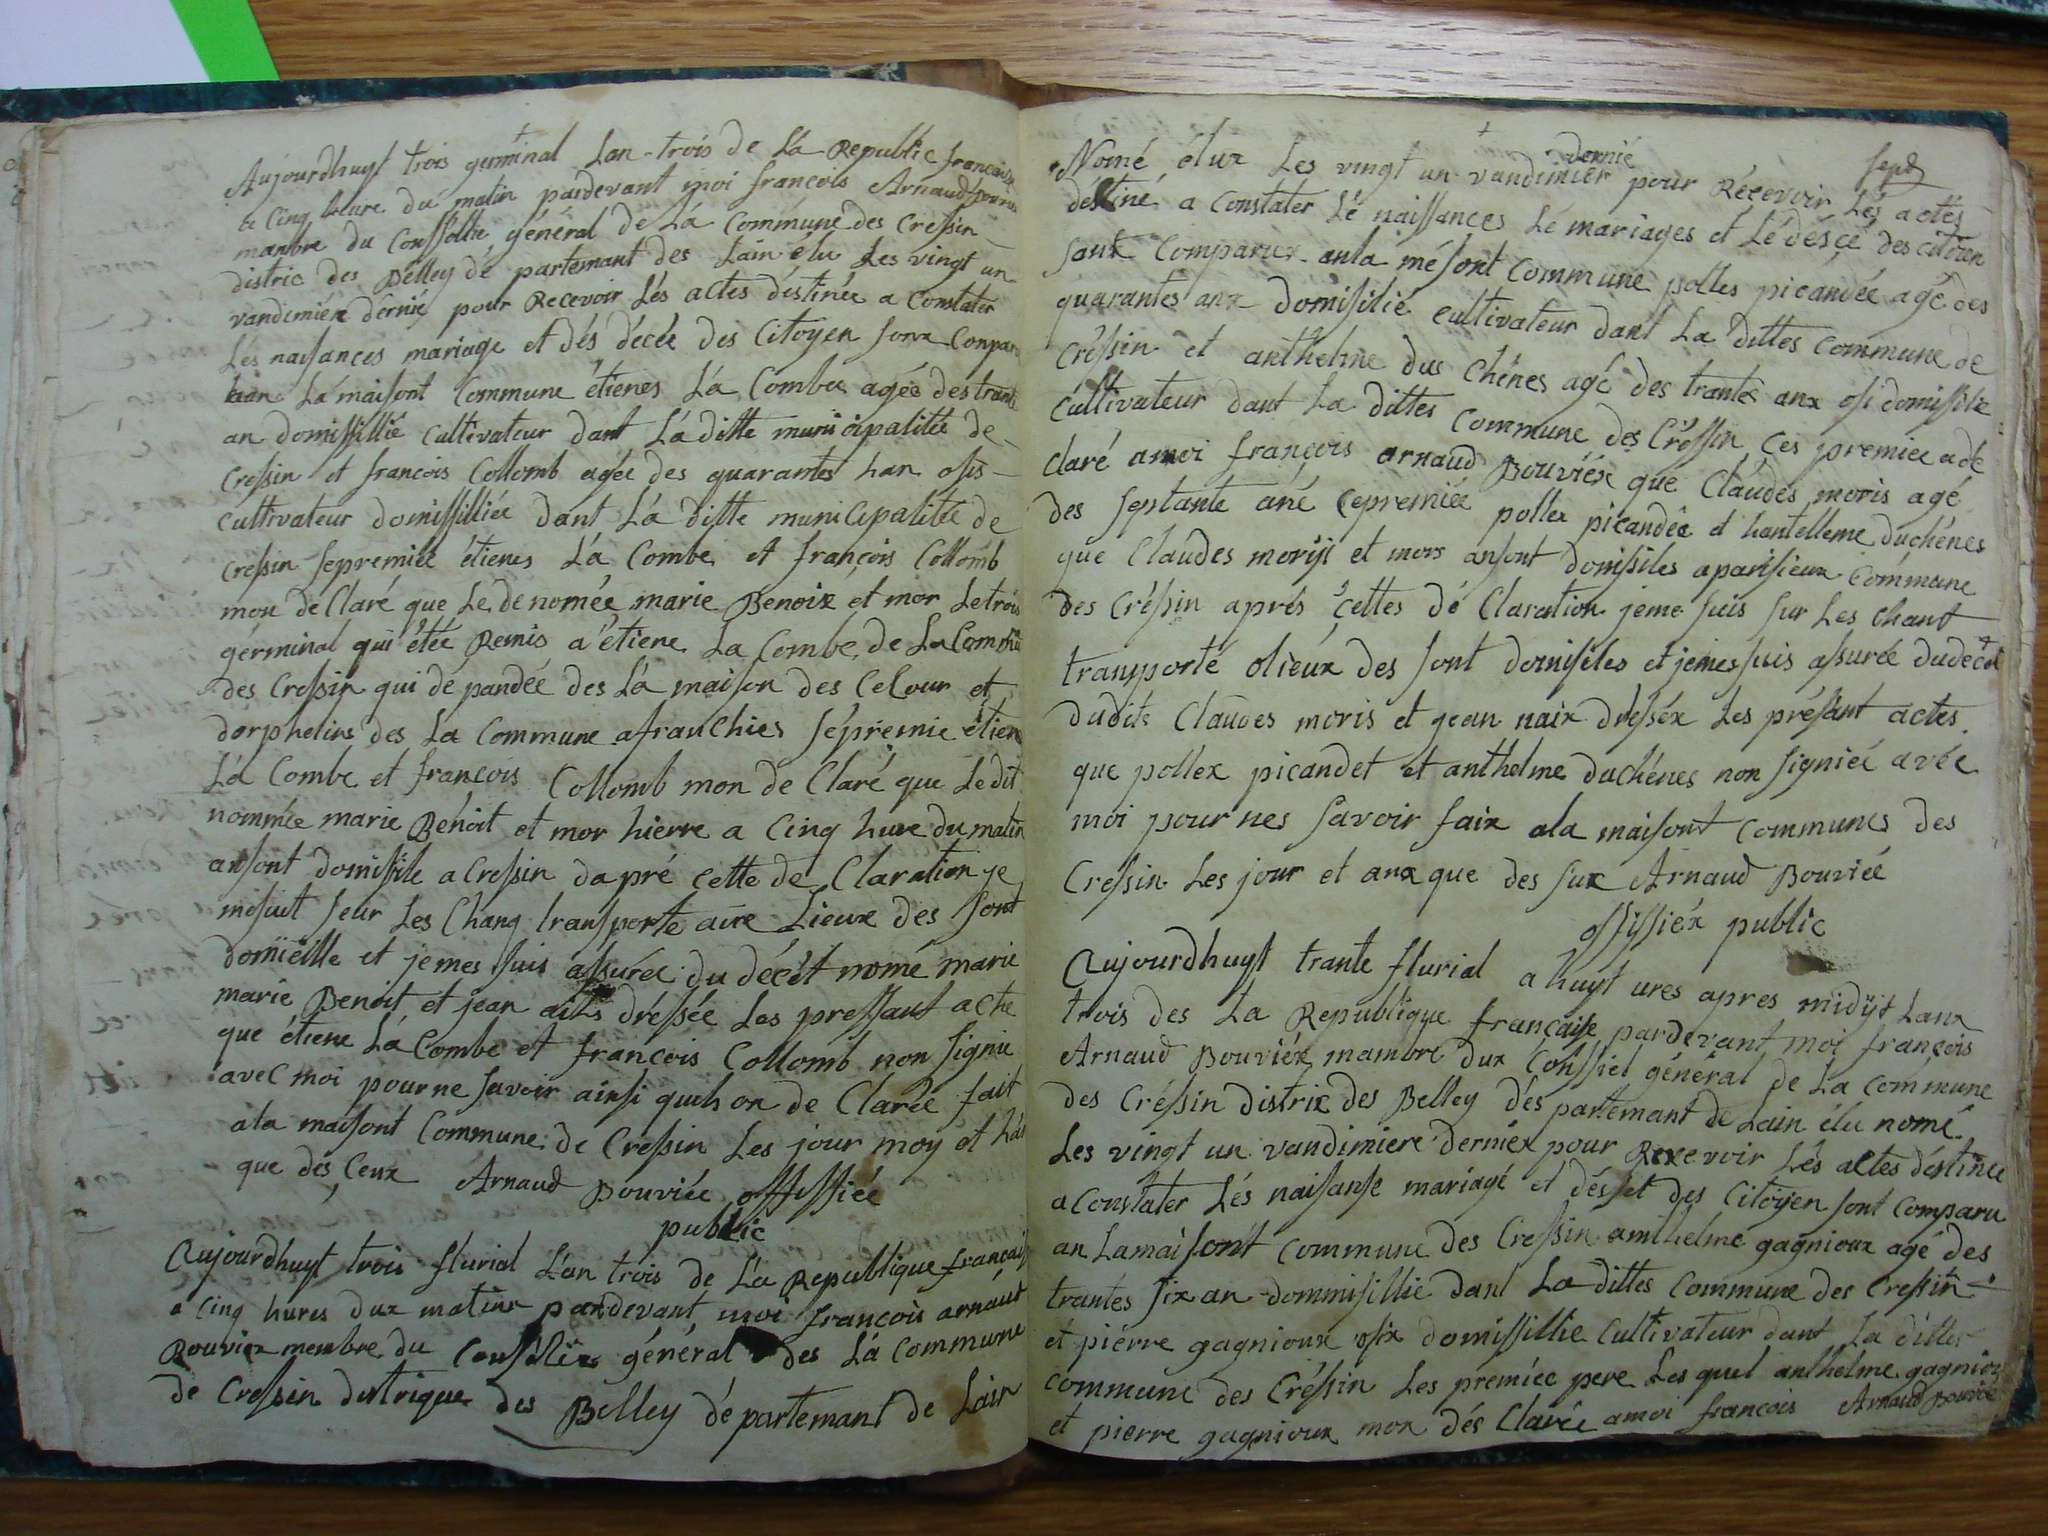 Aujourdhuyt trois germinal Lan-trois de La Republic francaise
a Cinq heure du matin pardevant moi francois Arnaud
manbre du Conssollie général de La Commune des Cressin
distric des Belley dé partemant des Lain élu Les vingt un
vandimiéx dernie pour Recevoir Lés actes déstinée a Constater
Lés naissances mariage et dés décée des Citoyen sonx Conpar
La maisont Commune étienes La Combe agée des trante
an domissillié Cultivateur dant La ditte municipalitée de
Cressin et francois Collomb agée des quarantes han osis
cultivateur domissilliée dant La ditte municipalitée de
cressin sepremiée étienes La Combe et françois Collomb
mon deClaré que Le denomée marie Benoix et mor Le trois
gérminal qui étée Remis a étiene La Combe de La Commu
des Cressin qui dé pandée des La maison des Celour et
dorphelins des La Commune afranchies sépremie étien
La Combe et françois Collomb mon de Claré que Le dit
nommée marie Benoit et mor hierre a Cinq hure du matin
ansont domissile a Cressin dapré cette de Claration je
mésuit seur Les Chang transporte aux Lieux des sont
domicille et jemes suis assurée du décét nomé marie
marie Benoit et jean aits dréssée Les pressant acte
que étiene La Combe et françois Collomb non signie
avec moi pour ne savoir ainsi quels on de Clarée fait
ala maisont Commune de Cressin Les jour moy et
que des Ceux Arnaud Bouviée offissiée
public
Aujourdhuyt trois flurial L'an trois de La Republique français
a Cinq hures dux matinx pardevant moi francois arnaut
Bouvier membre du général des La Commune
de Cressin distrique des Belley dé partemant de Lain
sept
Nomé élux Les vingt un vandimier dernié pour Récevoir Lés actes
déstiné a Constater Lé naissances Lé mariages et Lé désçé des citoien
sont Comparux anla mésont Commune polles picandée agé des
quarantes anx domisilié cultivateur dant La dittes Commune de
Créssin et anthelme dus Chénes agé des trantes anx osi domisilie
Cultivateur dant La dittes Commune des Créssin Ces premiée a dé
claré amoi françois arnaud Bouviéx que Claudes moris agé
des septante ané cepremiée pollex picandée et hantelleme duchénes
que Claudes moriji et mors ansont domissiles aparisieux Commune
des Créssin aprés cettes dé Claration jeme suis sur Les Chant
transporté olieux des sont domisiles et jemes suis assurée dudécet
dudits Claudes moris et jean naix dresséx Les présant actes
que pollex picandet et anthelme duchénes non signiée avée
moi pour nes savoir faix ala maisont Communes des
Cressin Les jour et anx que des sux Arnaud Bouviée
ossissiéx public
Aujourdhuyt trante flurial a huyt ures apres midiyt Lanx
trois des La Republique française pardevant moi françois
Arnaud Bouviéx mambre dux Conssiel général de La Commune
des Créssin distrix des Belley dés partemant de Lain élu nomé
Les vingt un vandimiere derniéx pour Recevoir Lés actes déstinée
a Constater Lés naisanse mariagé et désset des Citoyen sont Comparu
an Lamaisont Commune des Cressin anthelme gagnioux agé des
trantes six an dommisillié dant La dittes Commune des Cressin
et piérre gagnioux osix domissillie Cultivateur dant La dittes
Commune des Créssin Les premiée pere Les quel anthelme gagniou
et pierre gagnioux mon dés Clarée amoi francois Arnaud Bouvié